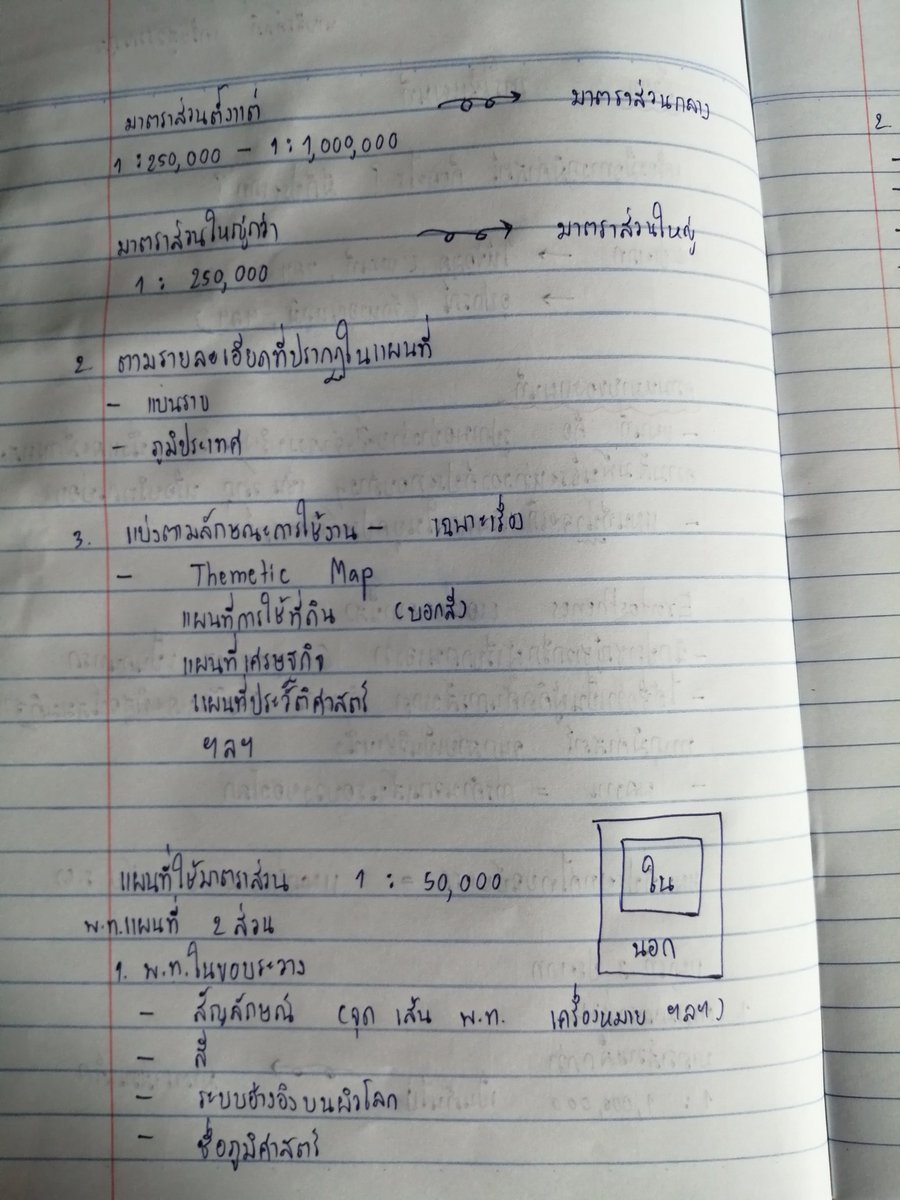 มาตราส่วนตั้งแต่ → มาตราส่วนกลาง
1 : 250,000 - 1 : 1,000,000
มาตราส่วนใหญ่กว่า → มาตราส่วนใหญ่
1 : 250,000
2 ตามรายละเอียดที่ปรากฏในแผนที่
- แบนราบ
- ภูมิประเทศ
3. แบ่งตามลักษณะการใช้งาน - เฉพาะเรื่อง
- Themetic Map
แผนที่การใช้ที่ดิน (บอกสี)
แผนที่เศรษฐกิจ
แผนที่ประวัติศาสตร์
ฯลฯ
แผนที่ใช้มาตราส่วน 1 : 50,000
พ.ท.แผนที่ 2 ส่วน
ใน
นอก
1. พ.ท.ในขอบระวาง
- สัญลักษณ์ (จุด เส้น พ.ท. เครื่องหมาย ฯลฯ)
- สี
- ระบบอ้างอิงบนผิวโลก
- ชื่อภูมิศาสตร์
2.